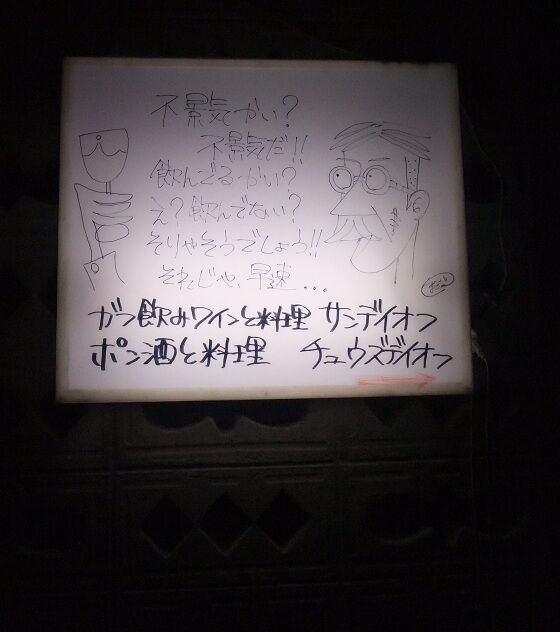 不景気かい?
不景気だ!!
飲んでるかい?
え?飲んでない?
そりゃそうでしょう!!
それじゃ、早速...
ガツ飲みワインと料理 サンデイオフ
ポン酒と料理 チュウズデイオフ